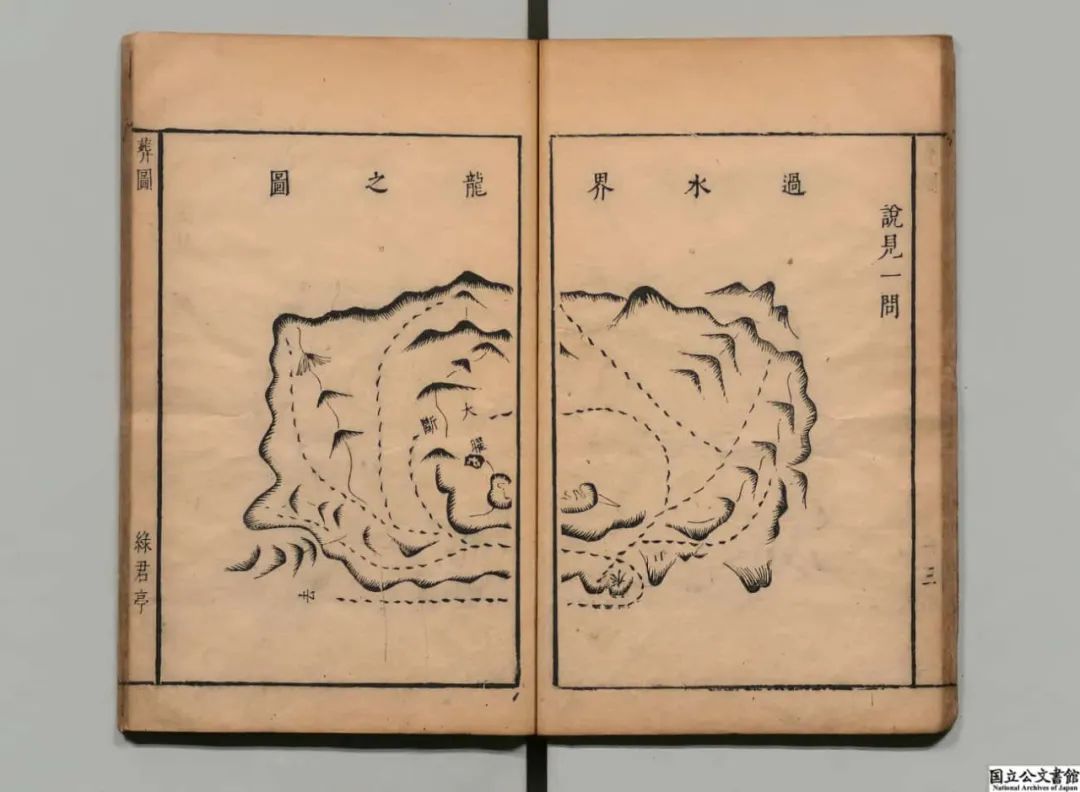 說見一問
過水界龍之圖
大
斷
水
去
葬圖
綠君亭
三
国立公文書館
National Archives of Japan